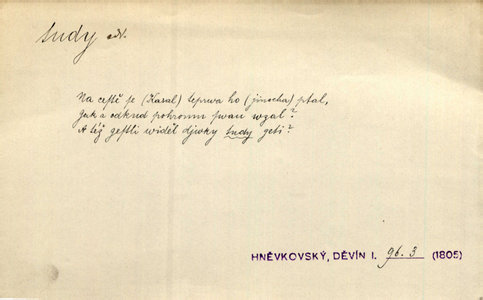 tudy adv.
Na cestě je (Kasal) teprwa ho (jinocha) ptal,
Gak a odkud pohromu swau wzal?
A též gestli widěl djwky tudy geti?
HNĚVKOVSKÝ, DĚVÍN I. 96.3 (1805)